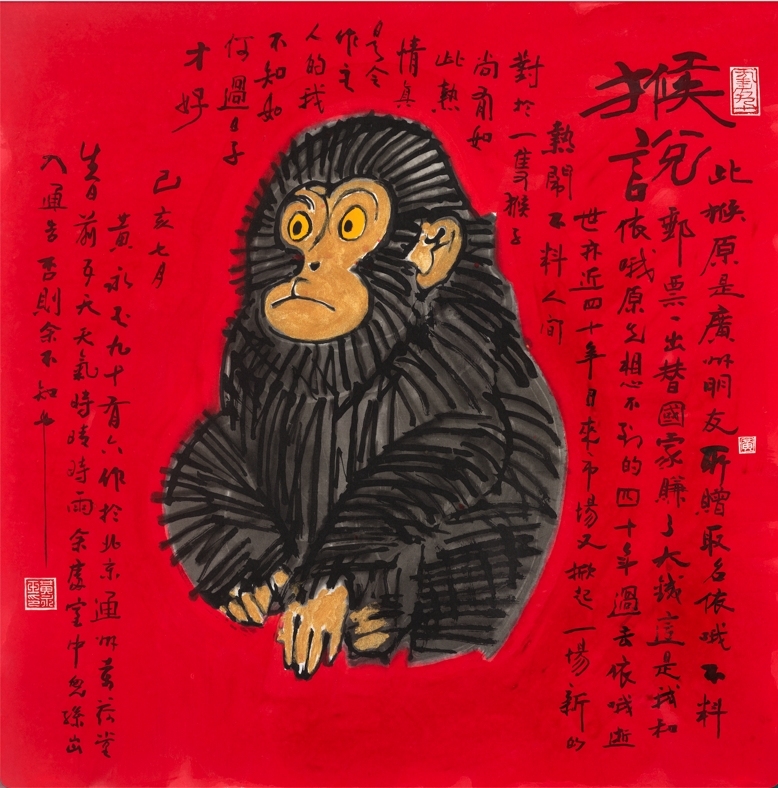 猴說
此猴原是廣州朋友所贈取名依哦不料
郵票一出替國家賺了大錢這是我和
依哦原先想不到的四十年過去依哦逝
世亦近四十年日來市場又掀起一場新的
熱鬧不料人間
對於一隻猴子
尚有如
此熱
情真
是令
作主
人的我
不知如
何過日子
才好
己亥七月
黃永玉九十有六作於北京通州萬荷堂
生日前五天天氣時晴時雨余處室中忽孫出
入通告否則余不知也
黃
黃永玉印